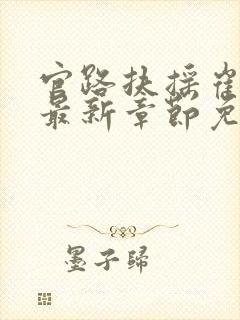 官路扶摇崔
最新章节免
墨子归